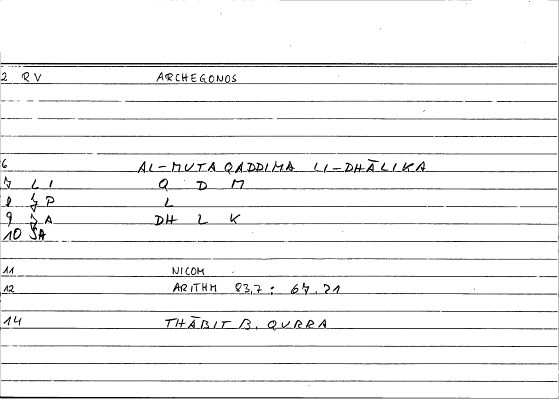 2 RV ARCHEGONOS
6 AL-MUTAQADDIMA LI-DHĀLIKA
7 LI Q D M
8 ZP L
9 ZA DH L K
10 SA
11 NICOM
12 ARITHM 83,7 : 67.21
14 THĀBIT B. QURRA